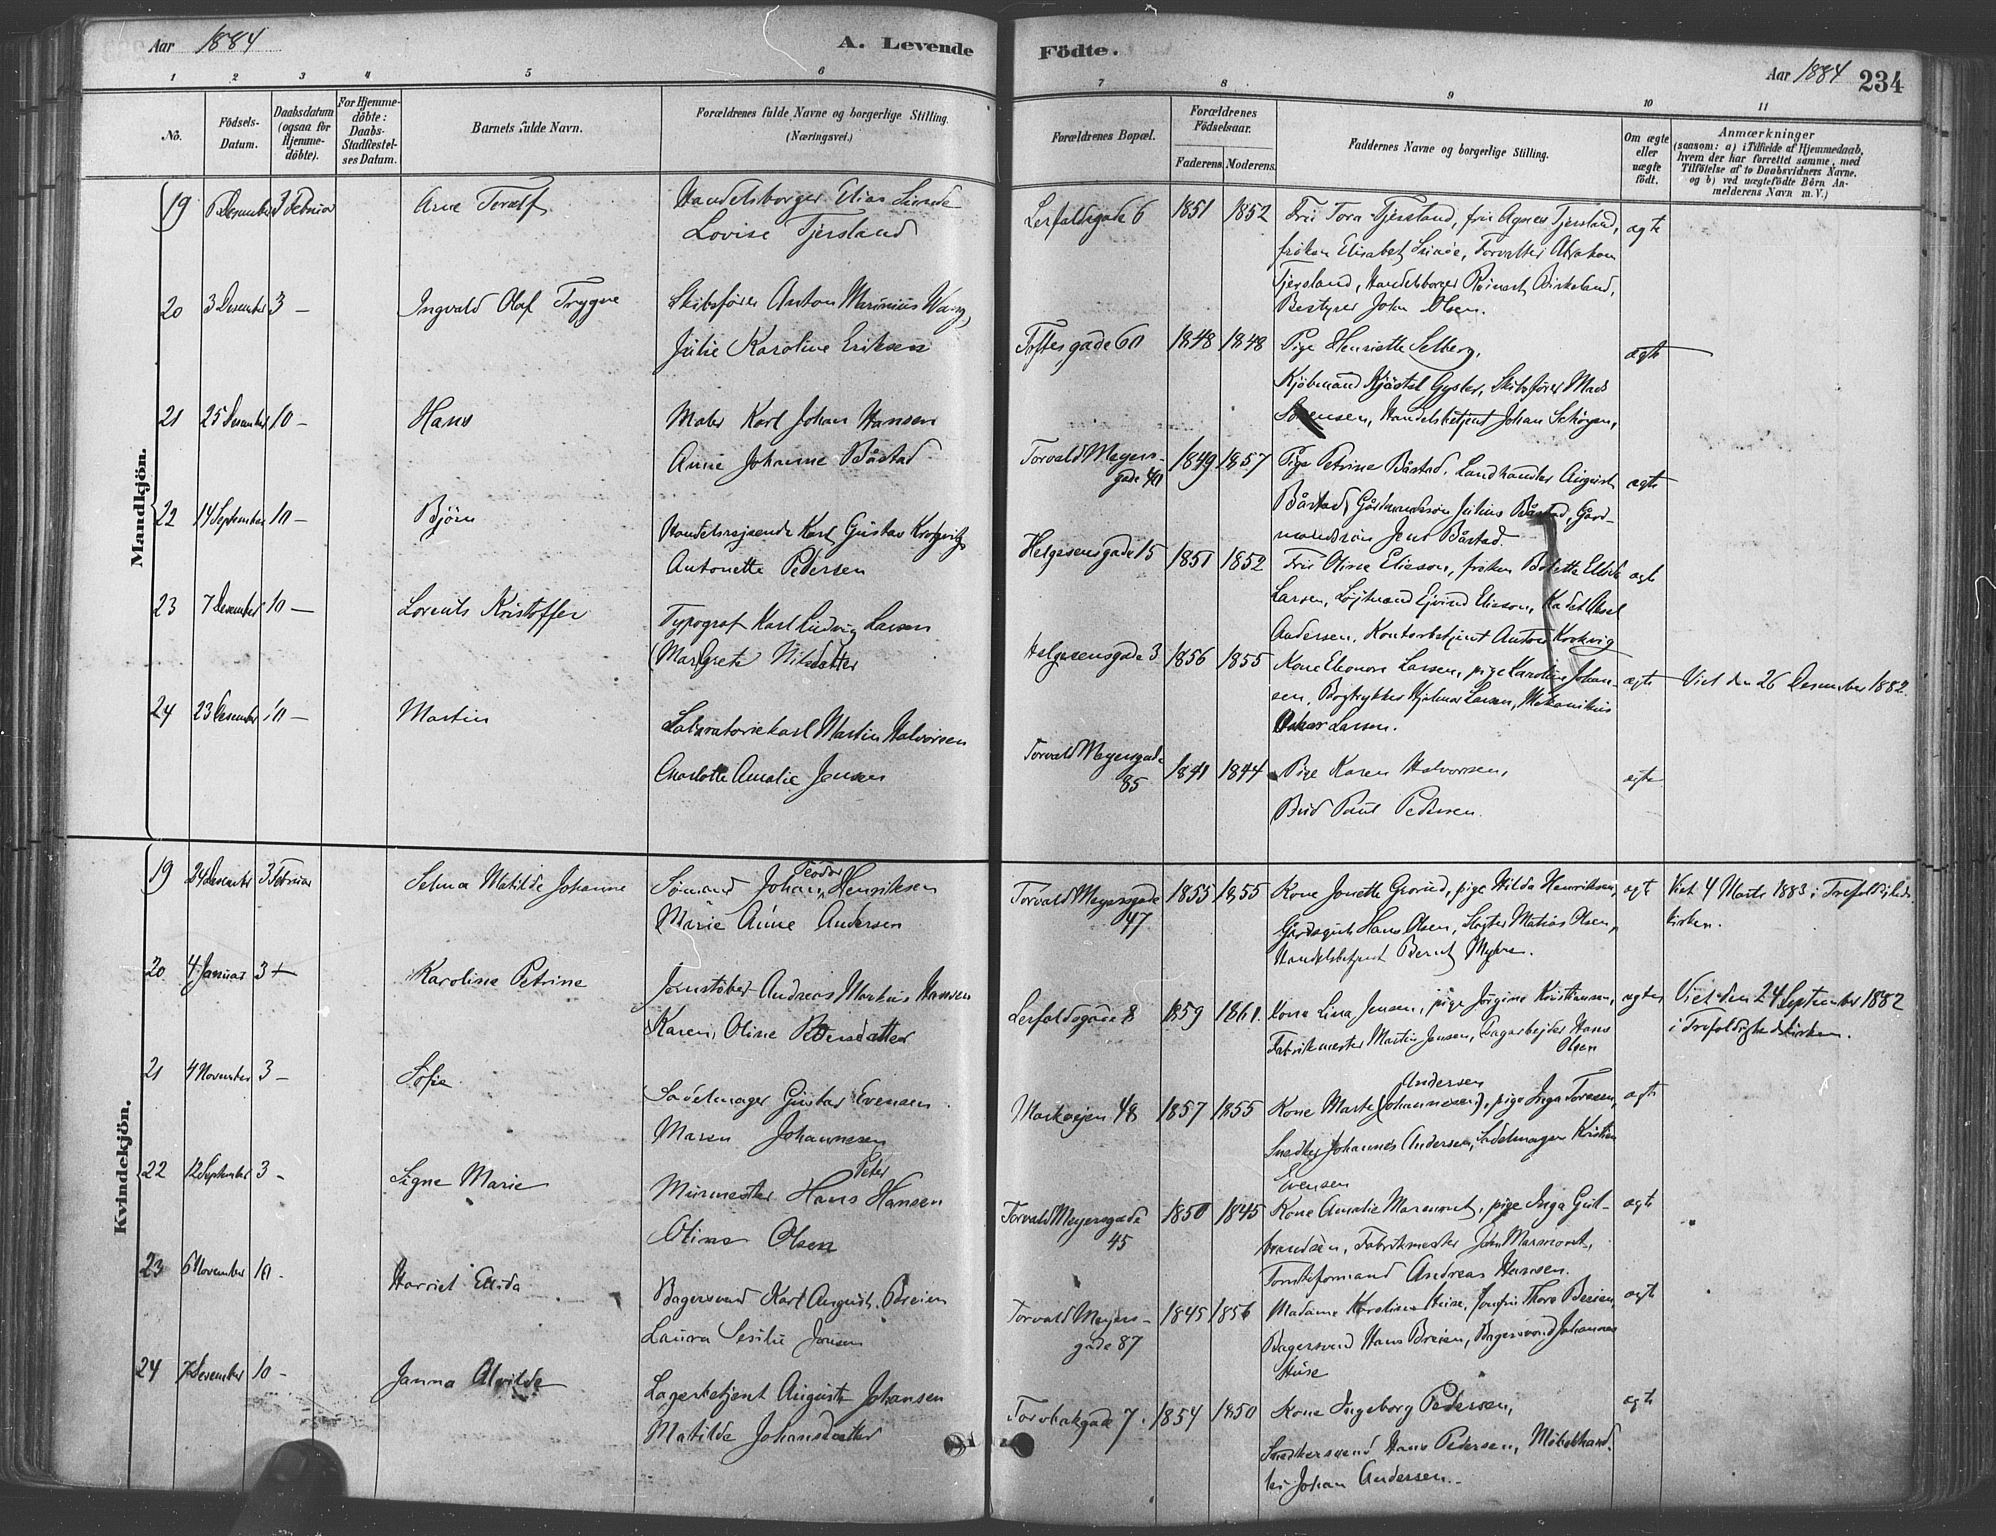 Aar 1884
A. Levende
Födte.
Aar 1884
234
1 2 3 4 5 6 7 8 9 10 11
No.
Födsels-Datum.
Daabsdatum (ogsaa for Hjemme-döbte).
For Hjemme-döbte: Daabs-Stadfæstel-ses Datum.
Barnets fulde Navn.
Forældrenes fulde Navne og borgerlige Stilling.
(Næringsvei.)
Forældrenes Bopæl.
Forældrenes Födselsaar.
Faderens. Moderens.
Faddernes Navne og borgerlige Stilling.
Om ægte eller uægte födt.
Anmærkninger
(saasom: a) i Tilfælde af Hjemmedaab, hvem der har forrettet samme, med Tilföielse af to Daabsvidners Navne. og b) ved uægtefödte Börn An-melderens Navn m. V.)
Mandkjön.
19 Desember 3 Februar Arne Toralf
Handelsborger Elias
Lovise Tjersland
Lerfaldsgade 6 1851 1852
Fru Tora Tjersland, fru Agnes Tjersland,
fröken Elisabet, Forvalter Abraham
Tjersland, Handelsborger Reinart Birkeland,
Bestyrer John Olsen.
ægte
20 3 Desember 3 — Ingvald Olaf Trygve
Skibsförer Anton Marinius Wang,
Julie Karoline Eriksen
Toftesgade 60 1848 1848
Pige Henriette Selberg,
Kjöbmand Gysler, Skibsförer Mads
Sörensen, Handelsbetjent Johan
ægte
21 25 Desember 10 — Hans
Maler Karl Johan Hansen
Anne Johanne Båstad
Torvald Meyers-gade 40 1849 1857
Pige Petrine Båstad, Landhandler August
Båstad, Gårdmandssön Julius Båstad, Gård-
mandssön Jens Båstad
ægte
22 14 September 10 — Björn
Handelsrejsende Karl Gustav
Antonette Pedersen
Helgesensgade 15 1851 1852
Fru Oline Eliesen, fröken Bolette Elise
Larsen, Löjtnand Ejvind Eliesen, Kadet Aksel
Andersen, Kontorbetjent Anton
ægte
23 7 Desember 10 — Lorents Kristoffer
Typograf Karl Ludvig Larsen
Margrete Nilsdatter
Helgesensgade 3 1856 1855
Kone Eleonore Larsen, pige Karoline Johan-
sen, Bogtrykker Hjalmar Larsen, Mekanikus
Oskar Larsen.
ægte
Viet den 26 Desember 1882.
24 23 Desember 10 — Martin
Laboratoriekarl Martin Halvorsen
Charlotte Amalie Jensen
Torvald Meyersgade 85 1841 1844
Pige Karen Halvorsen,
Bud Paul Pedersen.
ægte
Kvindekjön.
19 24 Desember 3 Februar Selma Matilde Johanne
Sömand Johan Teodor Henriksen
Marie Anne Andersen
Torvald Meyersgade 47 1855 1855
Kone Jonette Grorud, pige Hilda Henriksen,
Gårdsgut Hans Olsen, Slagter Matias Olsen,
Handelsbetjent Bernt Myhre.
ægt
Viet 4 Marts 1883 i Trefoldigheds-
kirken.
20 4 Januar 3 — Karoline Petrine
Jernstöber Andreas Markus Hansen
Karen Oline Pedersdatter
Lerfaldsgade 8 1859 1861.
Kone Lina Jensen, pige Jörgine Kristiansen,
Fabrikmester Martin Jensen, Dagarbejder Hans
Olsen
ægte
Viet den 24 September 1882
i Trefoldighedskirken.
21 4 November 3 — Sofie
Sadelmager Gustav Evensen
Maren Johannesen
Markvejen 48 1857 1855
Kone Marte Andersen (Johannesen), pige Inga Toresen,
Snedker Johannes Andersen, Sadelmager Kristian
Evensen
ægt
22 12 September 3 - Signe Marie
Murmester Hans Peter Hansen
Oline Olsen
Torvald Meyersgade 45 1850 1845
Kone Amalie, pige Inga Gul-
brandsen, Fabrikmester John,
Tomteformand Andreas Hansen.
ægt
23 6 November 10 - Harriet Elida
Bagersvend Karl August Breien
Laura Sesilie Jensen
Torvald Meyers-gade 87 1845 1856
Madame Karoline Huse, Jomfru Thora Breien,
Bagersvend Hans Breien, Bagersvend Johannes
Huse
ægt
24 7 Desember 10 - Janna Alvilde
Lagerbetjent August Johansen
Matilde Johansdatter
Torvbakgade 7. 1854 1850
Kone Ingeborg Pedersen,
Snedkersvend Hans Pedersen, Möbelhand-
ler Johan Andersen.
ægt